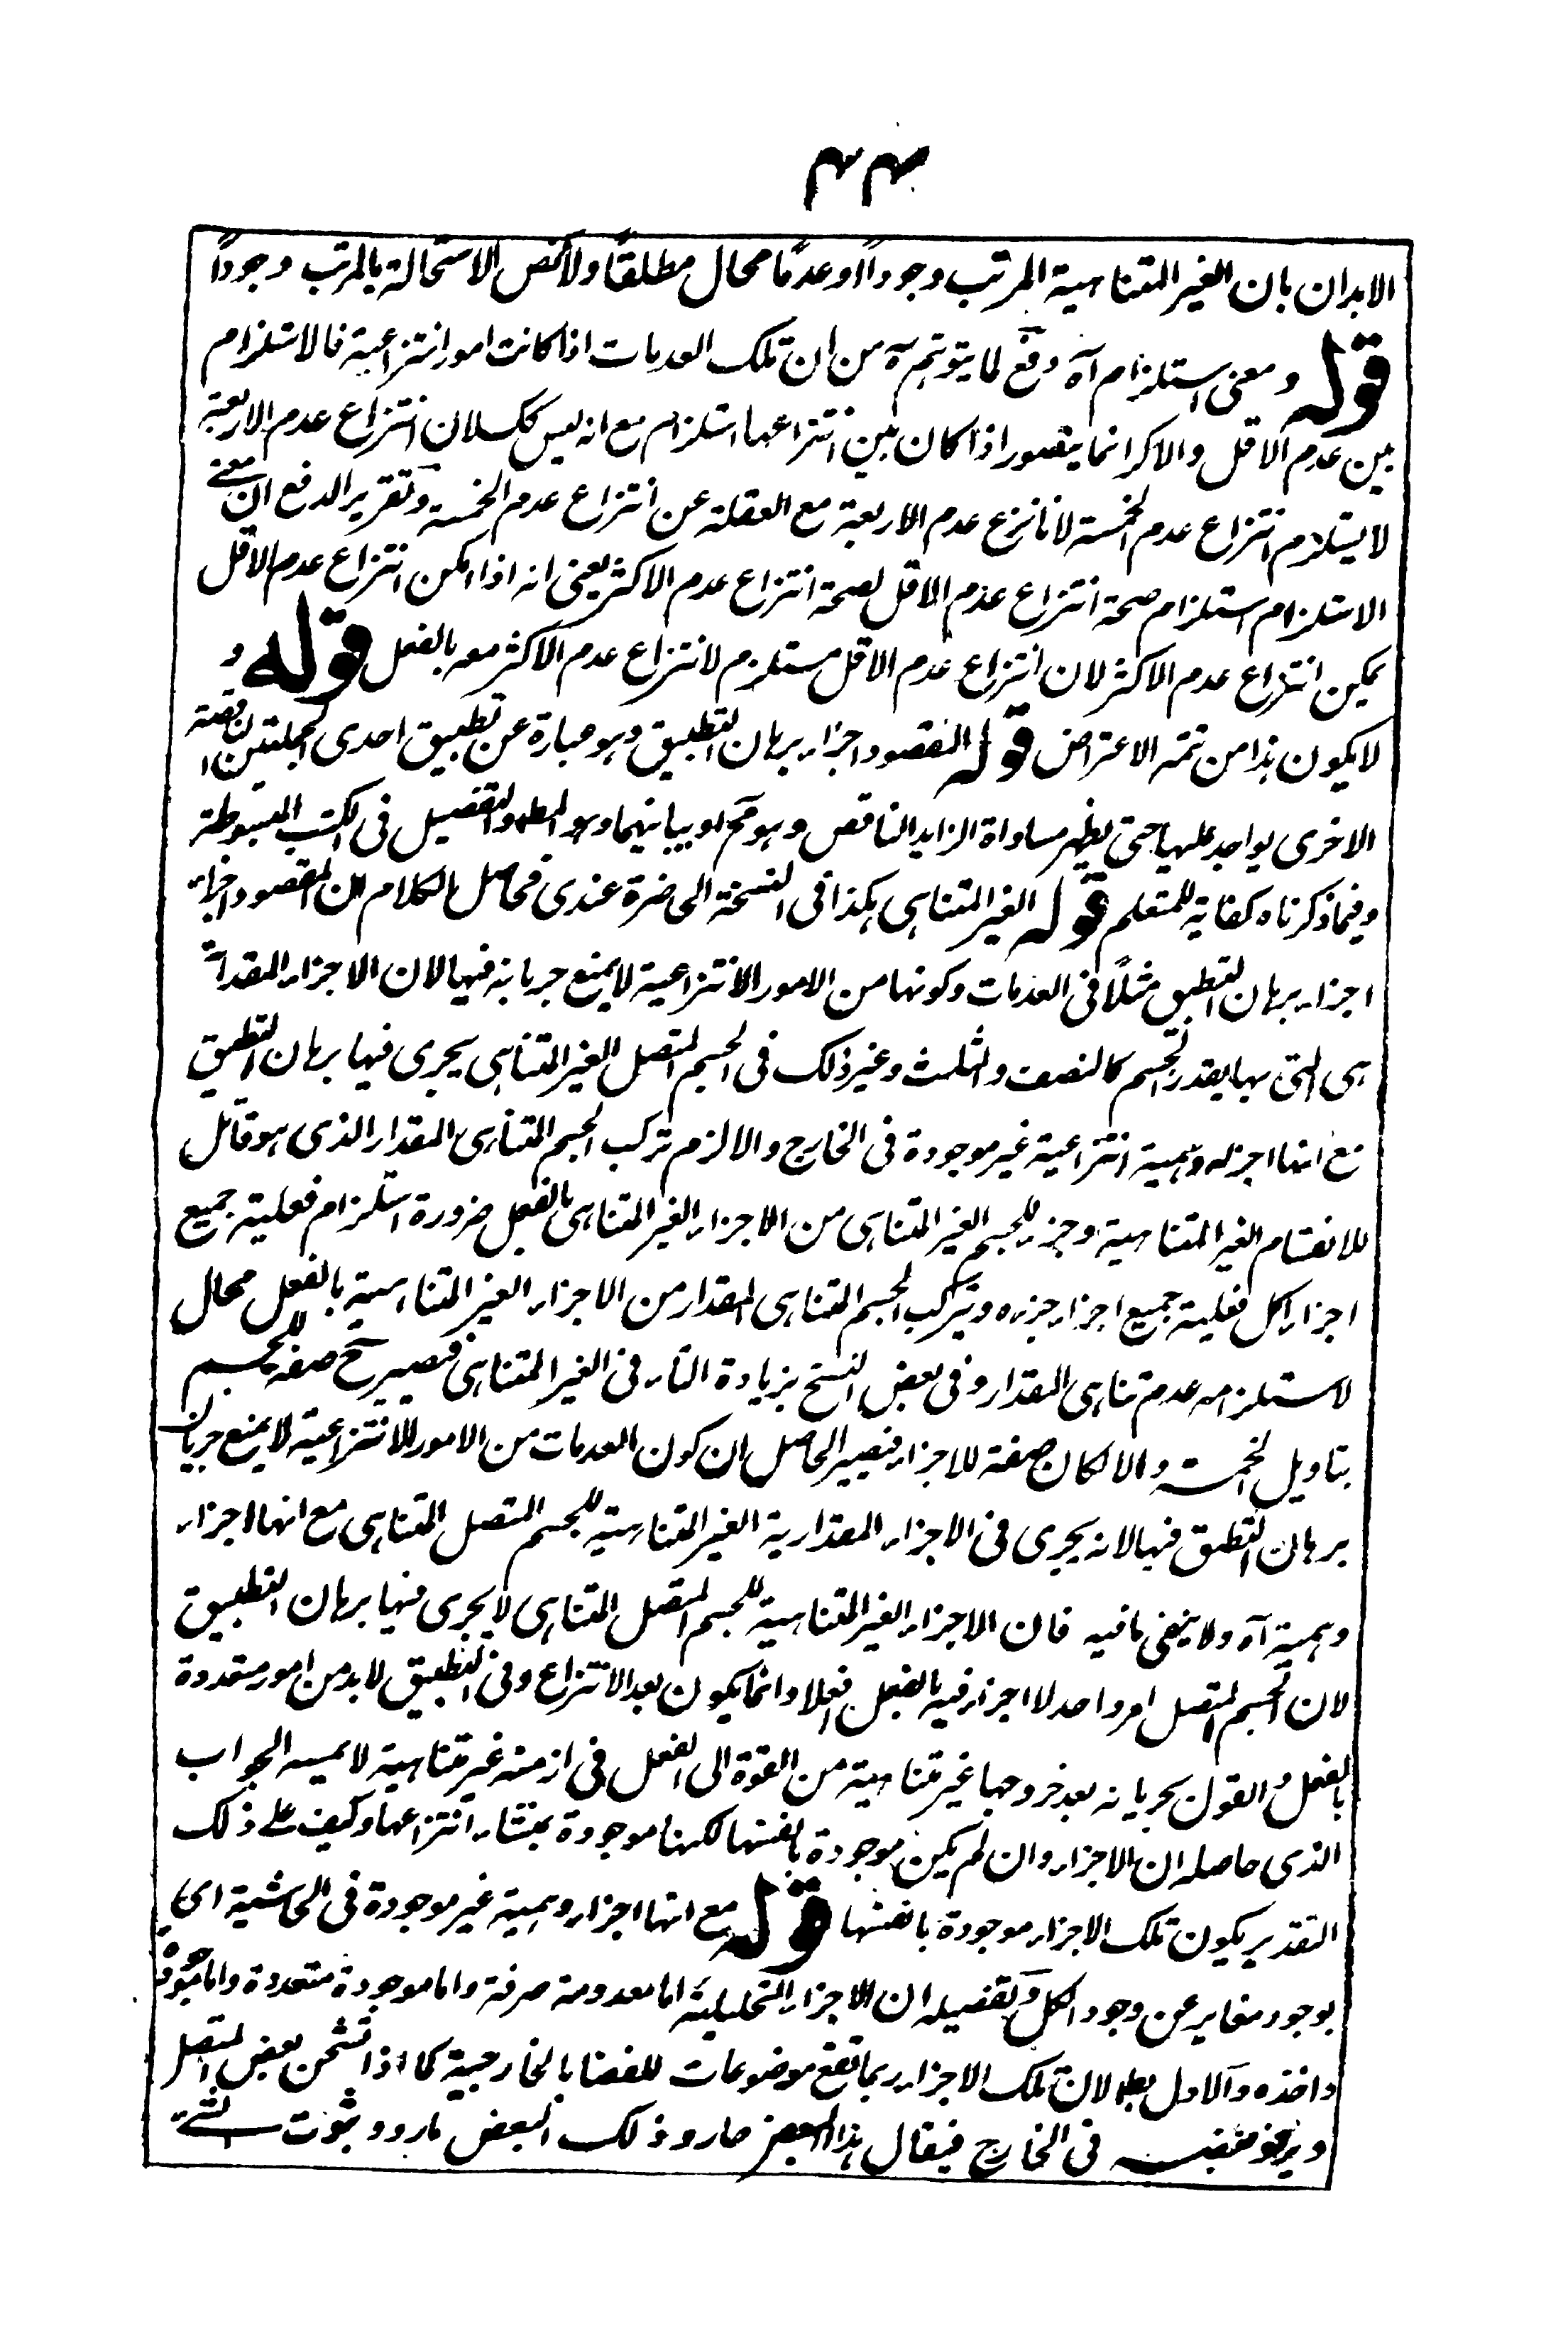 الابدان بان الغير المتناهية المرتب وجوداً او عدمًا محال مطلقًا ولا تختص الاستحالة بالمرتب وجوداً
قوله ومعنى استلزام آه دفع لما يتوهم آه من ان تلك العدمات اذا كانت امور انتزاعية فالاستلزام
بين عدم الاقل والاكثر انما يتصور اذا كان بين انتزاعها استلزام مع انه ليس كك لان انتزاع عدم الاربعة
لا يستلزم انتزاع عدم الخمسة لانا ننزع عدم الاربعة مع الغفلة عن انتزاع عدم الخمسة وتقرير الدفع ان معنے
الاستلزام استلزام صحة انتزاع عدم الاقل لصحة انتزاع عدم الاكثر يعنى انه اذا امكن انتزاع عدم الاقل
يمكن انتزاع عدم الاكثر لان انتزاع عدم الاقل مستلزم لانتزاع عدم الاكثر معه بالفعل قوله و
لا يكون هذا من تتمه الاعتراض قوله المقصود اجراء برهان التطبيق وهو عبارة عن تطبيق احدى الجملتين الناقصة
الاخرى بواحد عليها حتى يظهر مساواة الزايد الناقص وهو مح او يباينهما وهو المط والتفصيل فى الكتب المبسوطة
وفيما ذكرناه كفاية للمتعلم قوله الغير المتناهى هكذا فى النسخة الحاضرة عندى فحاصل الكلام ان المقصود اجراء
اجزاء برهان التطبيق مثلاً فى العدمات وكونها من الامور الانتزاعية لا يمنع جريانه فيها لان الاجزاء المقدارية
هى التى بها يقدر الجسم كالنصف والثلث وغير ذلك فى الجسم المتصل الغير المتناهى يجرى فيها برهان التطبيق
مع انها اجزاء وهمية انتزاعية غير موجودة فى الخارج والا لزم تركب الجسم المتناهى المقدار الذى هو قائل
للانقسام الغير المتناهية وجزء للجسم الغير المتناهى من الاجزاء الغير المتناهى بالفعل ضرورة استلزام فعلية جميع
اجزاء الكل فعلية جميع اجزاء جزءه وتركب الجسم المتناهى المقدار من الاجزاء الغير المتناهية بالفعل محال
لاستلزامه عدم تناهى المقدار وفى بعض النسخ بزيادة التاء فى الغير المتناهى فتصيرح صفة للجسم
بتاويل الخمسة والا لكان صفة للاجزاء فيصير الحاصل ان كون العدمات من الامور الانتزاعية لا يمنع جريان
برهان التطبيق فيها لانه يجرى فى الاجزاء المقدارية الغير المتناهية للجسم المتصل المتناهى مع انها اجزاء
وهمية آه ولا يخفى ما فيه فان الاجزاء الغير المتناهية للجسم المتصل المتناهى لا يجرى فيها برهان التطبيق
لان الجسم المتصل امر واحد لا اجزاء فيه بالفعل اصلا وانما يكون بعد الانتزاع وفى التطبيق لابد من امور متعددة
بالفعل والقول بجريانه بعد خروجها غير متناهية من القوة الى الفعل فى ازمنة غير متناهية لا يميسه الجواب
الذى حاصله ان الاجزاء وان لم يكن موجودة بانفسها لكنها موجودة بمنشاء انتزاعها وكيف على ذلك
التقدير يكون تلك الاجزاء موجودة بانفسها قوله مع انها اجزاء وهمية غير موجودة فى الحاشية اى
بوجود مغاير عن وجود الكل وتفصيله ان الاجزاء التحليلية اما معدومة صرفة واما موجودة متعددة واما موجودة
واحدة والاول بط لان تلك الاجزاء ربما تقع موضوعات للقضايا الخارجية كما اذا تسخن بعض المتصل
فى الخارج فيقال هذا البعض حار وذلك البعض بارد وثبوت الشے